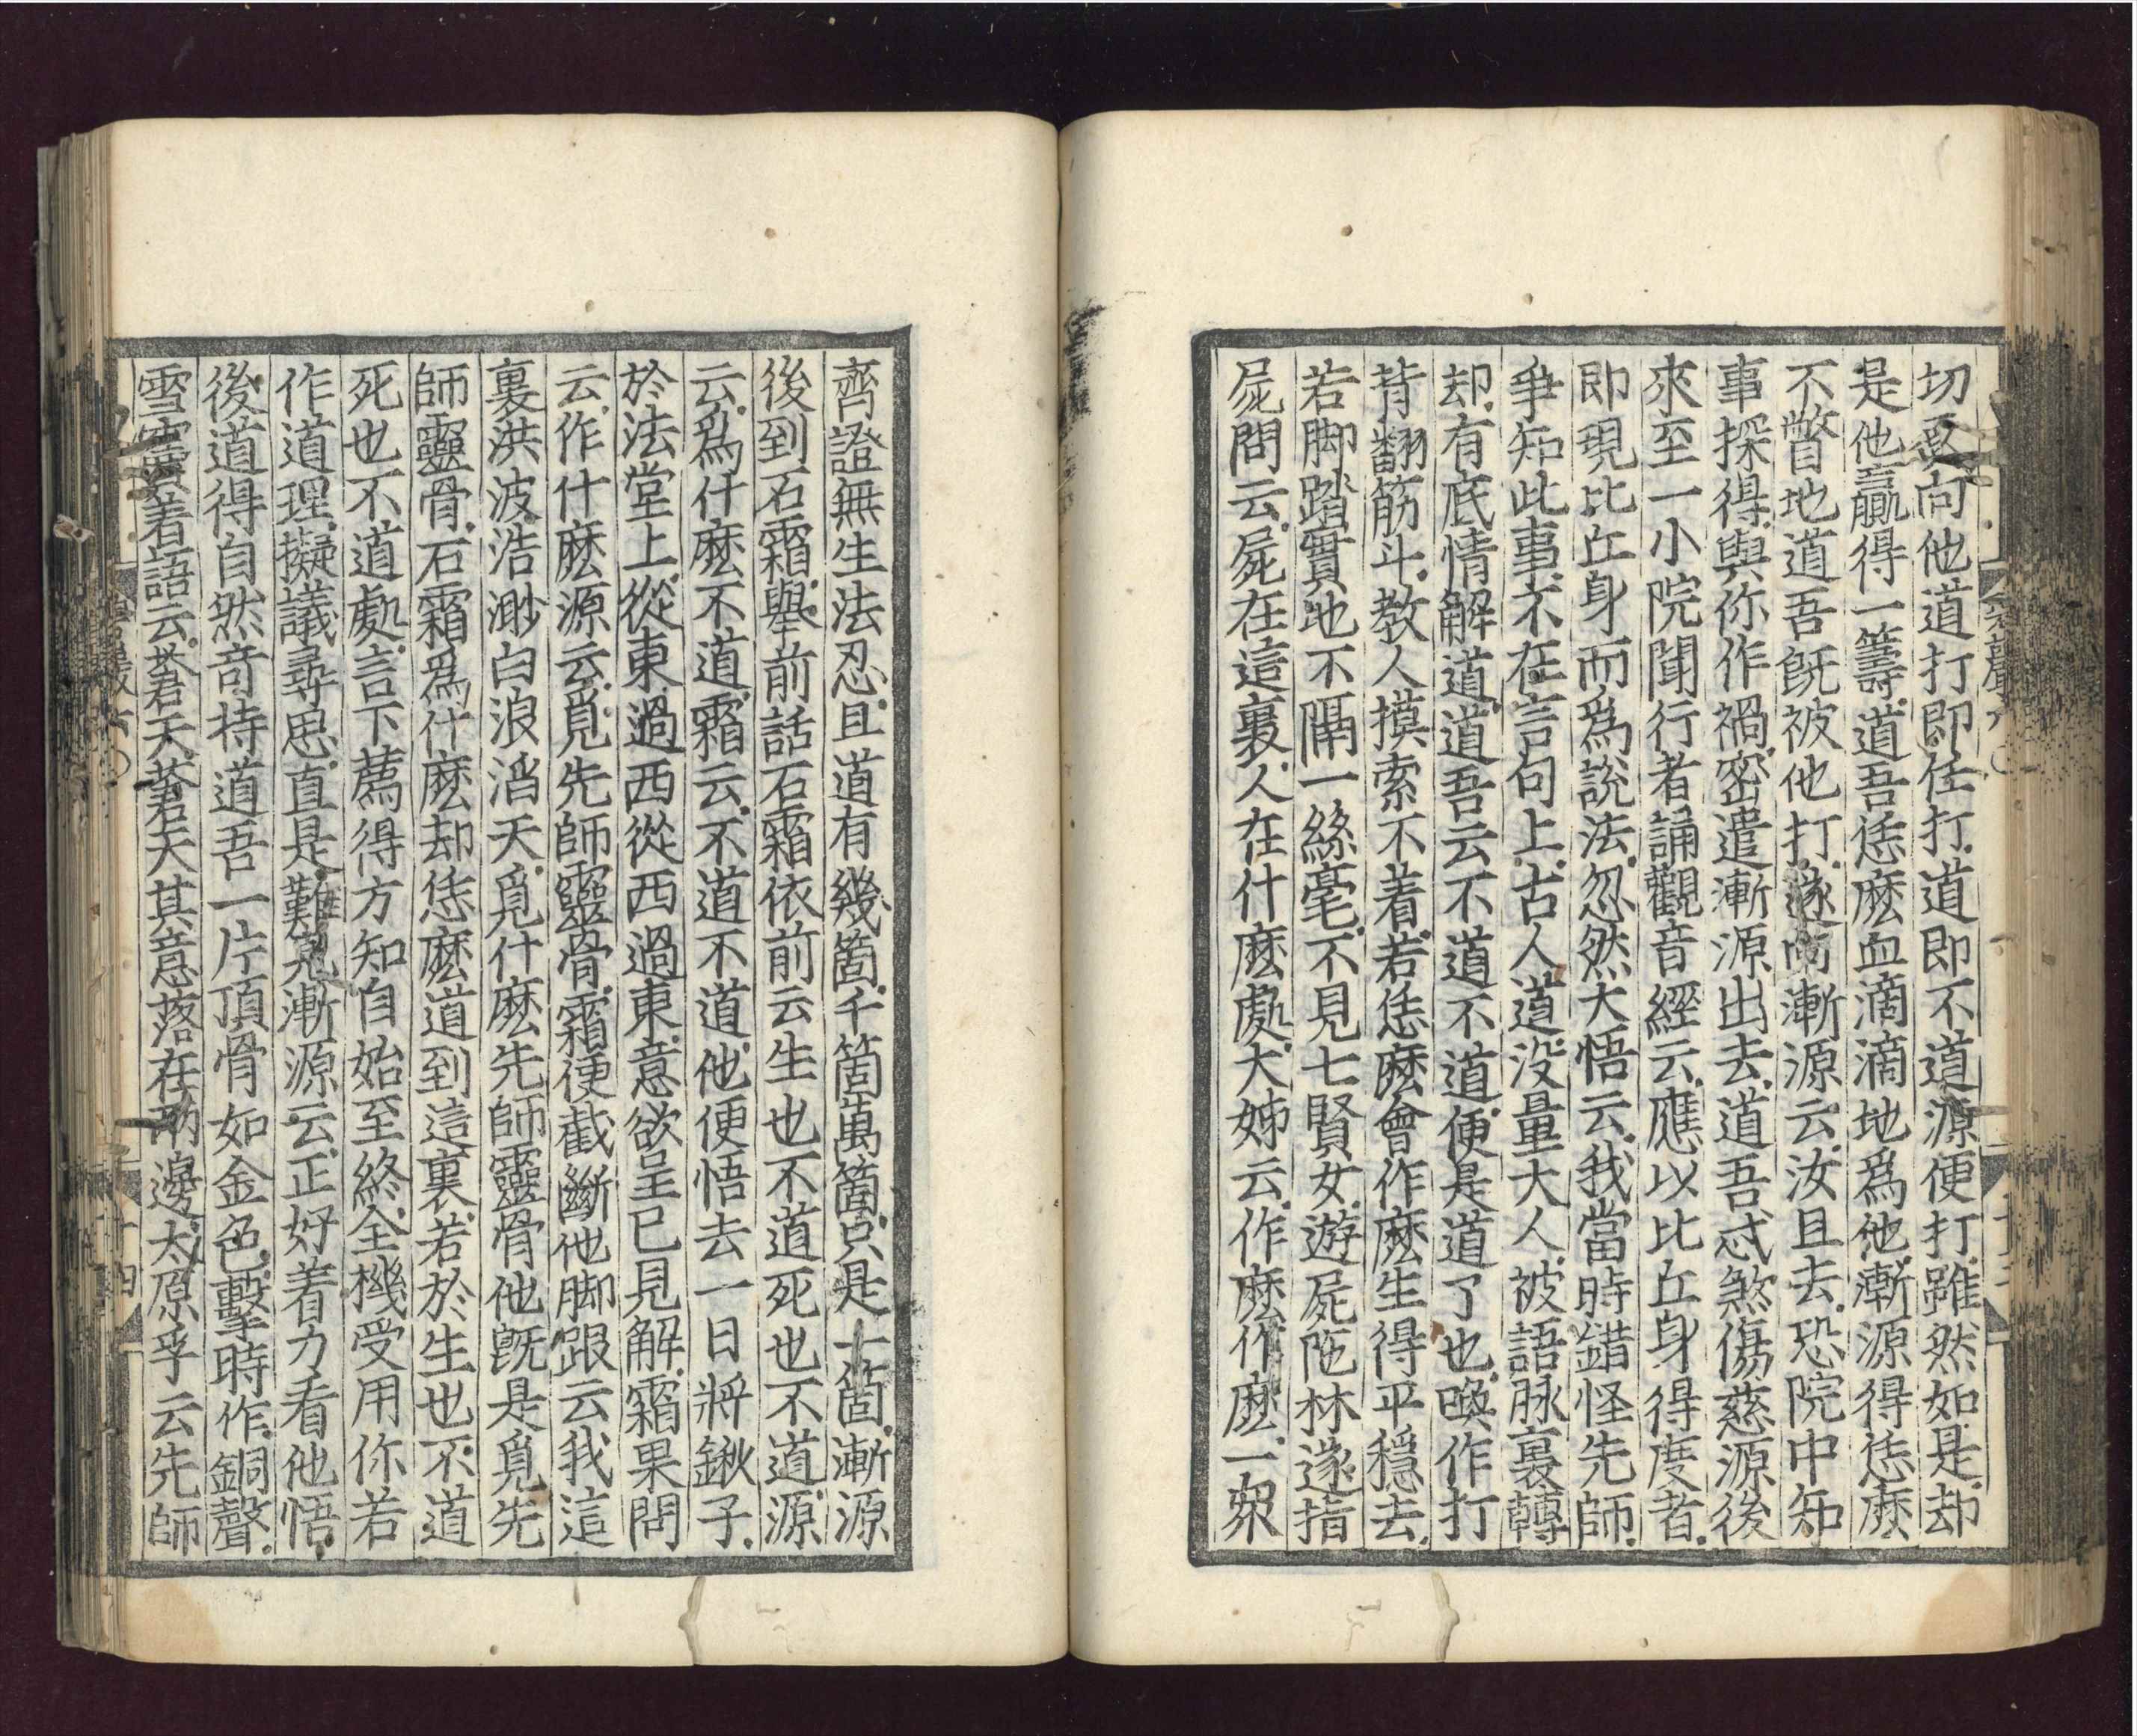 切更向他道打即任打道即不道源便打雖然如是却
是他贏得一籌道吾恁麽血滴滴地爲他漸源得恁麽
不瞥地道吾旣被他打遂向漸源云汝且去恐院中知
事探得與你作禍密遣漸源出去道吾忒煞傷慈源後
來至一小院聞行者誦觀音經云應以比丘身得度者
即現比丘身而爲說法忽然大悟云我當時錯怪先師
爭知此事不在言句上古人道沒量大人被語脉裏轉
却有底情解道道吾云不道不道便是道了也喚作打
背翻筋斗教人摸索不着若恁麽會作麽生得平穩去
若脚踏實地不隔一絲毫不見七賢女遊屍陁林遂指
屍問云屍在這裏人在什麽處大姊云作麽作麽一衆
齊證無生法忍且道有幾箇千箇萬箇只是一箇漸源
後到石霜舉前話石霜依前云生也不道死也不道源
云爲什麽不道霜云不道不道他便悟去一日將鍬子
於法堂上從東過西從西過東意欲呈已見解霜果問
云作什麽源云覓先師靈骨霜便截斷他脚跟云我這
裏洪波浩渺白浪滔天覓什麽先師靈骨他旣是覓先
師靈骨石霜爲什麽却恁麽道到這裏若於生也不道
死也不道處言下薦得方知自始至終全機受用你若
作道理擬議尋思直是難見漸源云正好着力看他悟
後道得自然奇特道吾一片頂骨如金色擊時作銅聲
雪竇着語云蒼天蒼天其意落在兩邊太原孚云先師